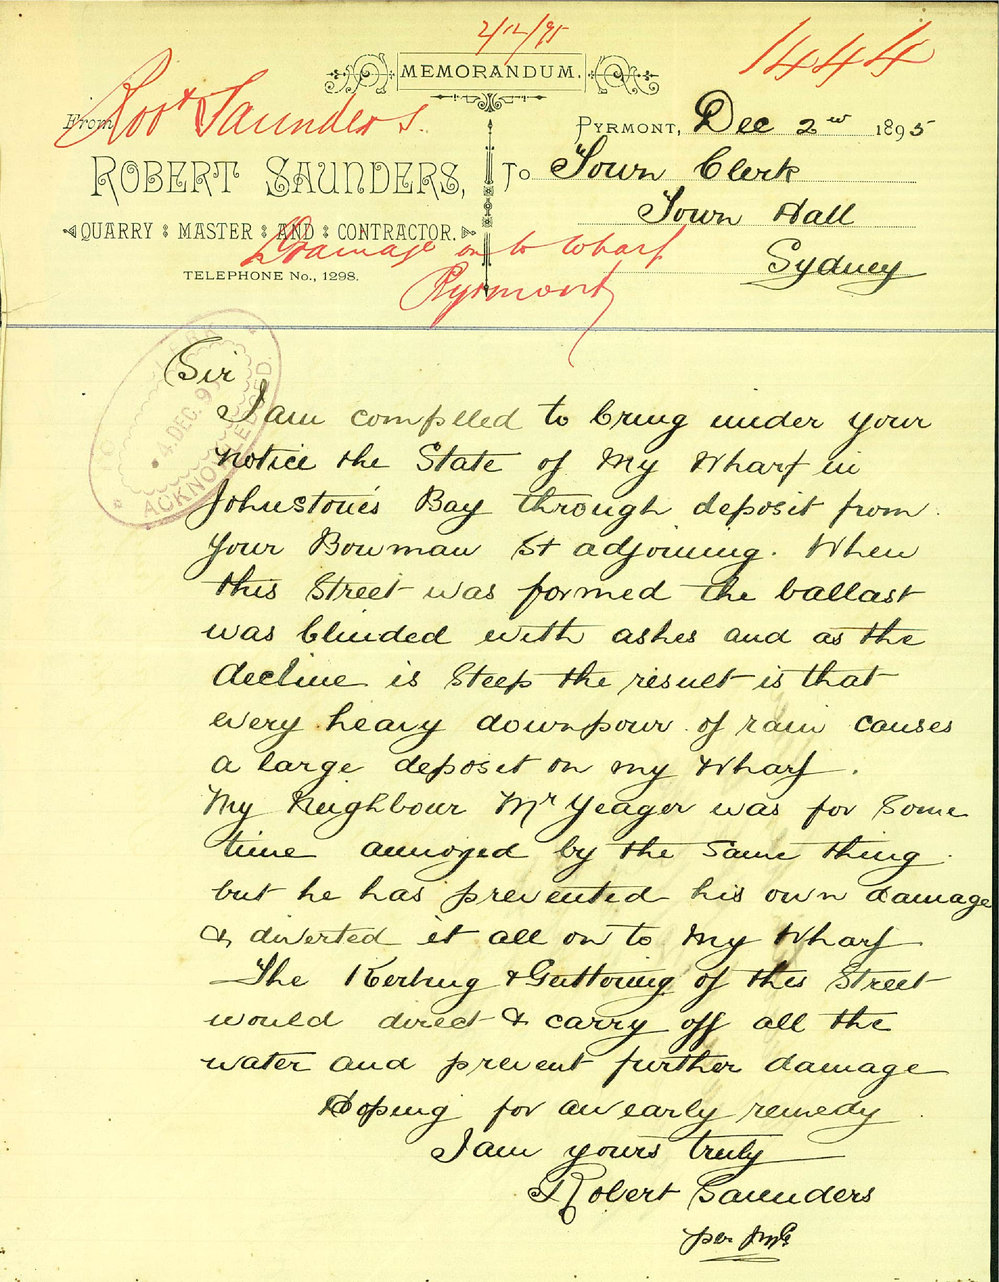 2/12/95
1444
MEMORANDUM.
From Robt Saunders.
PYRMONT, Dec 2nd 1895
ROBERT SAUNDERS,
To Town Clerk
QUARRY MASTER AND CONTRACTOR.
Town Hall
Drainage on to Wharf
TELEPHONE No., 1298.
Sydney
Pyrmont
4. DEC. 95
ACKNOWLEDGED.
Sir
I am complled to bring under your
notice the State of My Wharf in
Johnstone's Bay through deposit from
your Bowman St adjoining. When
this Street was formed the ballast
was blinded with ashes and as the
decline is steep the result is that
every heavy downpour of rain causes
a large deposit on my Wharf.
My Neighbour Mr Yeager was for Some
time annoyed by the Same thing.
but he has prevented his own damage
& diverted it all on to My Wharf
The Kerbing & Guttering of this Street
would direct & carry off all the
water and prevent further damage
Hoping for an early remedy.
I am yours truly
Robert Saunders
per